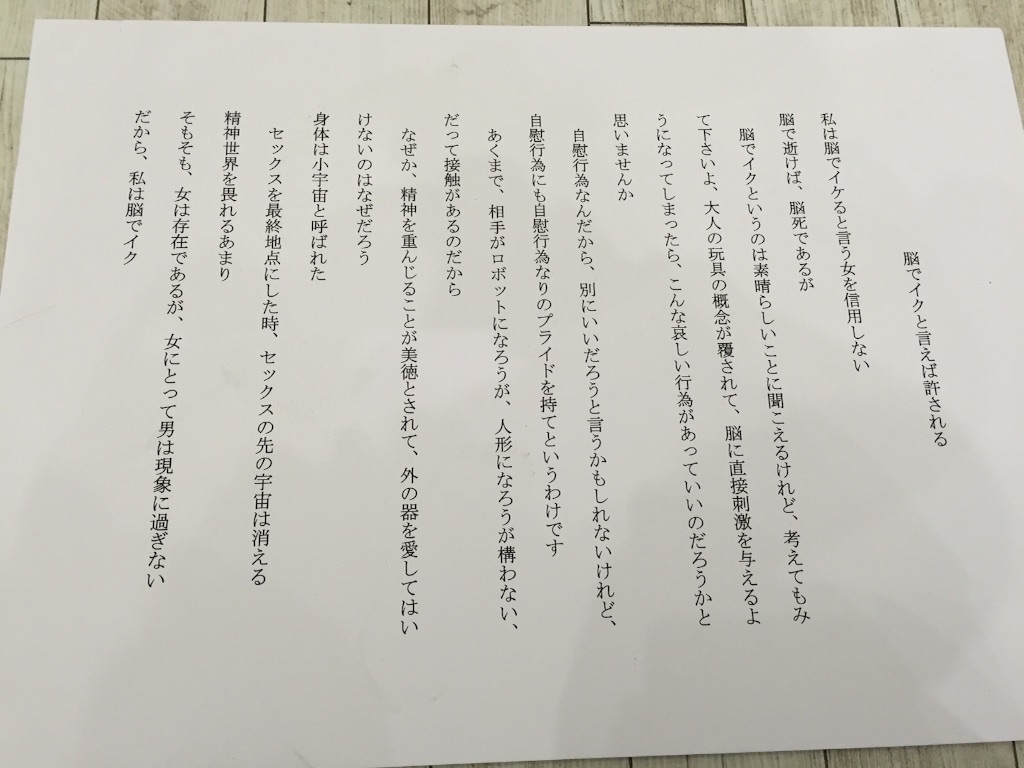 脳でイクと言えば許される
私は脳でイケると言う女を信用しない
脳で逝けば、脳死であるが
脳でイクというのは素晴らしいことに聞こえるけれど、考えてもみ
て下さいよ、大人の玩具の概念が覆されて、脳に直接刺激を与えるよ
うになってしまったら、こんな哀しい行為があっていいのだろうかと
思いませんか
自慰行為なんだから、別にいいだろうと言うかもしれないけれど、
自慰行為にも自慰行為なりのプライドを持てというわけです
あくまで、相手がロボットになろうが、人形になろうが構わない、
だって接触があるのだから
なぜか、精神を重んじることが美徳とされて、外の器を愛してはい
けないのはなぜだろう
身体は小宇宙と呼ばれた
セックスを最終地点にした時、セックスの先の宇宙は消える
精神世界を畏れるあまり
そもそも、女は存在であるが、女にとって男は現象に過ぎない
だから、私は脳でイク